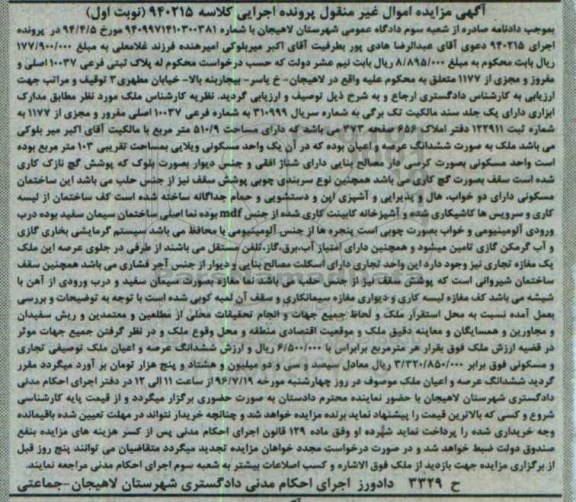 آگهی مزایده اموال غیر منقول پرونده اجرایی کلاسه ۹۴۰۲۱۵ (نوبت اول)
بموجب دادنامه صادره از شعبه سوم دادگاه عمومی شهرستان لاهیجان با شماره ۹۴۰۹۹۷۱۴۱۰۳۰۰۳۸۱ مورخ ۹۴/۴/۵ در پرونده
اجرای ۹۴۰۲۱۵ دعوی آقای عبدالرضا هادی پور بطرفیت آقای اکبر میربلوکی امیرهنده فرزند غلامعلی به مبلغ ۱۷۷/۹۰۰/۰۰۰
ریال بابت محکوم به مبلغ ۸/۸۹۵/۰۰۰ ریال بابت نیم عشر دولت که حسب درخواست محکوم له پلاک ثبتی فرعی ۱۰۰۳۷ اصلی و
مفروز و مجزی از ۱۱۷۷ متعلق به محکوم علیه واقع در لاهیجان- خ یاسر- بیجاربنه بالا- خیابان مطهری۳ توقیف و مراتب جهت
ارزیابی به کارشناس دادگستری ارجاع و به شرح ذیل توصیف و ارزیابی گردید. نظریه کارشناس ملک مورد نظر مطابق مدارک
ابرازی دارای یک جلد سند مالکیت تک برگی به شماره سریال ۳۱۰۹۹۹ به شماره فرعی ۱۰۰۳۷ اصلی مفروز و مجزی از ۱۱۷۷ به
شماره ثبت ۱۲۲۹۱۱ دفتر املاک ۶۵۶ صفحه ۲۷۳ می باشد که دارای مساحت ۵۱۰/۹ متر مربع با مالکیت آقای اکبر میر بلوکی
می باشد ملک به صورت ششدانگ عرصه و اعیان بوده که در آن یک واحد مسکونی ویلایی بمساحت تقریبی ۱۰۳ متر مربع بوده
است واحد مسکونی بصورت کرسی دار مصالح بنایی دارای شناژ افقی و جنس دیوار بصورت بلوک که پوشش گچ نازک کاری
شده است سقف بصورت گچ کاری می باشد همچنین نوع سربندی چوبی پوشش سقف نیز از جنس حلب می باشد این ساختمان
مسکونی دارای دو خواب، هال و پذیرایی و آشپزی اپن و دستشویی و حمام جداگانه ساخته شده است کف ساختمان از لیسه
کاری و سرویس ها کاشیکاری شده و آشپزخانه کابینت کاری شده از جنس mdf بوده نما اصلی ساختمان سیمان سفید بوده درب
ورودی آلومینیومی و خواب بصورت چوبی است پنجره ها از جنس آلومینیومی با محافظ می باشد سیستم گرمایشی بخاری گازی
و آب گرمکن گازی تامین میشود و همچنین دارای امتیاز آب،برق،گاز،تلفن مستقل می باشند از طرفی در جلوی عرصه این ملک
یک مغازه تجاری نیز وجود دارد این واحد تجاری دارای اسکلت مصالح بنایی و دیوار از جنس آجر فشاری می باشد همچنین سقف
ساختمان شیروانی است که پوشش سقف نیز از جنس حلب می باشد نما مغازه بصورت سیمان سفید و درب ورودی از آهن با
شیشه می باشد کف مغازه لیسه کاری و دیواری مغازه سیمانکاری و سقف آن لمبه کوبی شده است با توجه به توضیحات و بررسی
بعمل آمده نسبت به محل استقرار ملک و لحاظ جمیع جهات و انجام تحقیقات محلی از مطلعین و معتمدین و ریش سفیدان
و مجاورین و همسایگان و معاینه دقیق ملک و موقعیت اقتصادی منطقه و محل وقوع ملک و در نظر گرفتن جمیع جهات موثر
در قضیه ارزش ملک فوق بقرار هر مترمربع برابراس با ۶/۵۰۰/۰۰۰ ریال و ارزش ششدانگ عرصه و اعیان ملک توصیفی تجاری
و مسکونی فوق برابر ۳/۳۲۰/۸۵۰/۰۰۰ ریال معادل سیصد و سی و دو میلیون و هشتاد و پنج هزار تومان بر آورد میگردد مقرر
گردید ششدانگ عرصه و اعیان ملک موصوف در روز چهارشنبه مورخه ۹۶/۷/۱۹ از ساعت ۱۱ الی ۱۲ در دفتر اجرای احکام مدنی
دادگستری شهرستان لاهیجان با حضور نماینده محترم دادستان به صورت حضوری برگزار میگردد و از قیمت پایه کارشناسی
شروع و کسی که بالاترین قیمت را پیشنهاد نماید برنده مزایده خواهد شد و چنانچه خریدار نتواند در مهلت تعیین شده باقیمانده
وجه خریداری شده را پرداخت نماید سپرده او وفق ماده ۱۲۹ قانون اجرای احکام مدنی پس از کسر هزینه های مزایده بنفع
صندوق دولت ضبط خواهد شد و در صورت درخواست مجدد خواهان مزایده تجدید میگردد متقاضیان می توانند پنج روز قبل
از برگزاری مزایده جهت بازدید از ملک فوق الاشاره و کسب اطلاعات بیشتر به شعبه سوم اجرای احکام مدنی مراجعه نمایند.
ح ۳۳۲۹ دادورز اجرای احکام مدنی دادگستری شهرستان لاهیجان-جماعتی